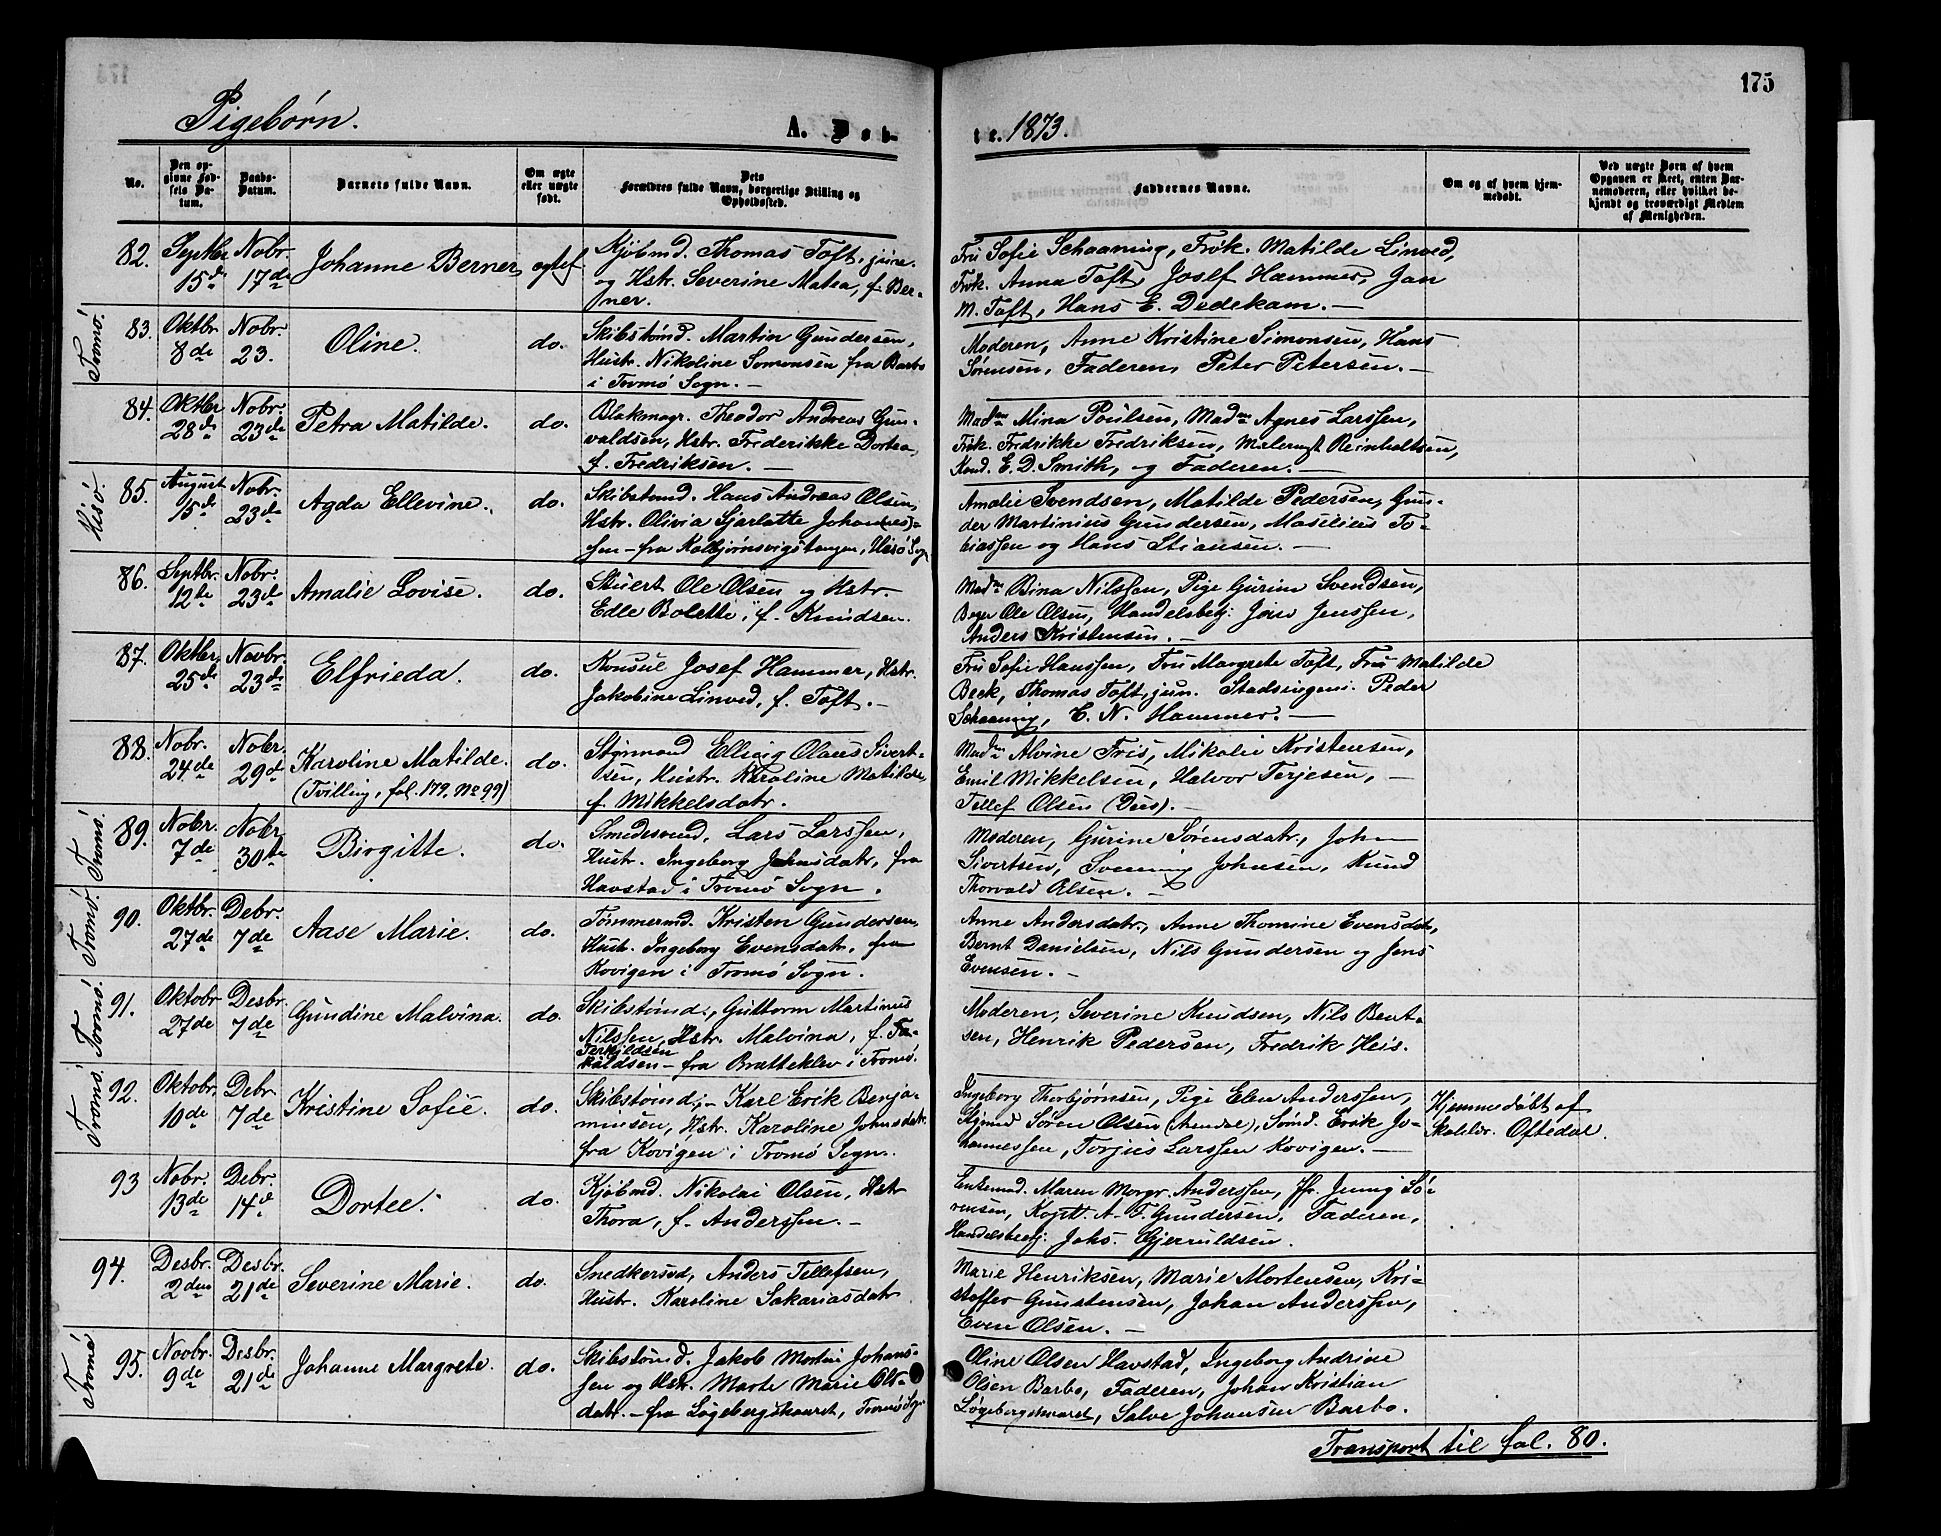 175
Pigebørn.
A. Døb-
te. 1873.
No.
Den op-
givne Fød-
sels Da-
tum.
Daabs-
Datum.
Barnets fulde Navn.
Om ægte
eller uægte
født.
Dets
Forældres fulde Navn, borgerlige Stilling og
Opholdssted.
Faddernes Navne.
Om og af hvem hjem-
medøbt.
Ved uægte Børn af hvem
Opgaven er skeet, enten Bar-
nemoderen, eller hvilket be-
kjendt og troværdigt Medlem
af Menigheden.
82. Septbr. 15de Nobr. 17de Johanne Berner ægtef.
Kjøbmd. Thomas Toft, juine.
og Hstr. Severine Matea, f. Ber-
ner.
Fru Sofie Schaaning, Frøk. Matilde Linved,
Frøk. Anna Toft, Josef Hammer, Jan
M. Toft, Hans E. Dedekam. —
Tromø. 83. Oktbr. 8de Nobr. 23. Oline. do.
Skibstømd. Martin Gundersen,
Hustr. Nikoline Somonsen fra Barbo
i Tromø Sogn. —
Moderen, Anne Kristine Simonsen, Hans
Sørensen, Faderen, Peter Petersen. —
84. Oktbr. 28de Nobr. 23de Petra Matilde. do.
Blakmagr. Theodor Andreas Gun-
valdsen, Hstr. Frederikke Dortea,
f. Fredriksen. —
Madm Mina Poulsen, Madm Agnes Larssen,
Frøk. Fredrikke Fredriksen, Malermst Reinholtsen,
Kand. E. D. Smith, og Faderen. —
Hisø. 85. August 15de Nobr. 23de Agda Ellevine. do.
Skibstømd. Hans Andreas Olsen,
Hstr. Olivia Sjarlotte Johan(nes)-
sen – fra Kolbjørnsvigstangen, Hisø Sogn
Amalie Svendsen, Matilde Pedersen, Gun-
der Martinius Gundersen, Masilius To-
biassen og Hans Stiansen. —
86. Septbr. 12te Nobr. 23de Amalie Lovise. do.
Stuert Ole Olsen og Hstr.
Edle Bolette, f. Knudsen.
Madm Bina Nilssen, Pige Gurine Svendsen,
Bager Ole Olsen, Handelsbetj: Jens Jenssen,
Anders Kristensen. —
87. Oktbr. 25de Novbr. 23de Elfrieda. do.
Konsul Josef Hammer, Hstr.
Jakobine Linved, f. Toft. —
Fru Sofie Hanssen, Fru Margrete Toft, Fru Matilde
Beck, Thomas Toft, jun. Stadsingeni. Peder
Schaaning, E. N. Hammer. —
88. Nobr. 24de Nobr. 29de Karoline Matilde. do.
(Tvilling, fol. 179. No 99)
Styrmand Ellevig Olaus Sivert-
sen, Hustr. Karoline Matilde,
f. Mikkelsdatr.
Madm Alvine Fris, Mikalie Kristensen,
Emil Mikkelsen, Halvor Terjesen, —
Tellef Olsen (Dus). —
Tromø. 89. Nobr. 7de Nobr. 30te Birgitte. do.
Smedesvend, Lars Larssen,
Hustr. Ingeborg Johnsdatr, fra
Havstad i Tromø Sogn.
Moderen, Gurine Sørensdatr., John
Sivertsen, Svenning Johnsen, Knud
Thorvald Olsen. —
Tromø. 90. Oktbr. 27de Debr. 7de Aase Marie. do.
Tømmermd. Kristen Gundersen,
Hustr. Ingeborg Evensdatr, fra
Kovigen i Tromø Sogn.
Anne Andersdatr., Anne Thomine Evensdatr,
Bernt Danielsen, Nils Gundersen og Jens
Evensen. —
Tromø. 91. Oktobr 27de Desbr. 7de Gundine Malvina. do.
Skibstømd., Guttorm Martinus
Nilssen, Hstr. Malvina, f. Ta-
Terkildsen
kaldsen – fra Bratteklev i Tromø.
Moderen, Severine Knudsen, Nils Bent-
sen, Henrik Pedersen, Fredrik Heis.
Tromø. 92. Oktobr. 10de Debr. 7de Kristine Sofie. do.
Skibstømd; – Karl Erik Benja-
minsen, Hstr. Karoline Johnsdatr.
fra Kovigen i Tromø Sogn.
Ingeborg Thorbjørnsen, Pige Elen Anderssen,
Stymd Søren Olsen (Arendal), Sømd. Erik Jo-
hannessen, Torjus Larssen Kovigen. —
Hjemmedøbt af
Skolelær. Oftedal.
93 Nobr. 13de Debr. 14de Dortee. do.
Kjøbmd. Nikolai Olsen, Hstr
Thora, f. Anderssen. —
Enkemad. Maren Margr. Anderssen, Jfr. Jenny Sø-
rensen, Kaptt. A. T. Gundersen, Faderen,
Handelsbetj: Johs. Gjeruldsen.
94. Desbr. 2den Desbr. 21de Severine Marie. do.
Snedkersvd, Anders Tellefsen,
Hustr. Karoline Sakariasdatr
Marie Henriksen, Marie Mortensen, Kri-
stoffer Gunstensen, Johan Anderssen,
Even Olsen. —
Tromø 95. Novbr. 9de Desbr. 21de Johanne Margrete. do.
Skibstømd. Jakob Martin Johans-
sen og Hstr. Marte Marie Ols-
datr. – fra Løgebergskaaret, Tromø Sogn
Oline Olsen Havstad, Ingeborg Andrine
Olsen Barbo, Faderen, Johan Kristian
Løgebergskaaret, Salve Johansen Barbo.
Transport til fol. 80.